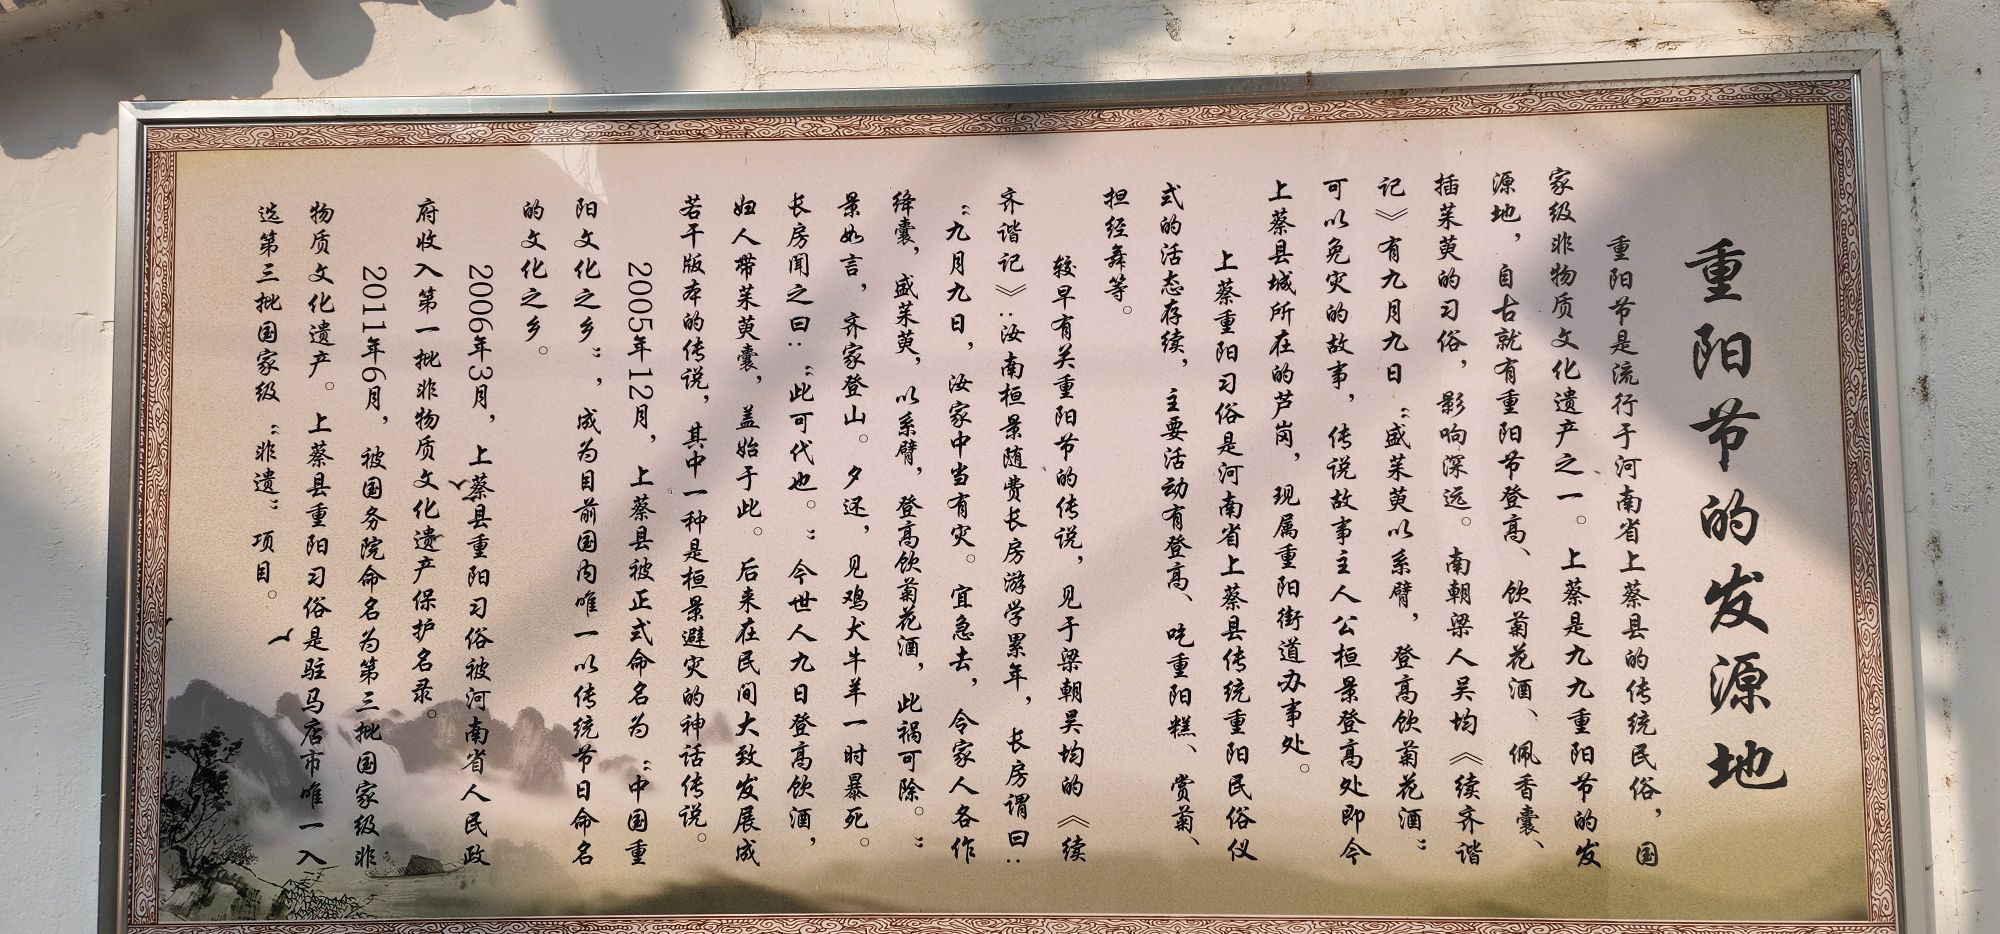 重阳节的发源地
重阳节是流行于河南省上蔡县的传统民俗，国
家级非物质文化遗产之一。上蔡是九九重阳节的发
源地，自古就有重阳节登高、饮菊花酒、佩香囊、
插茱萸的习俗，影响深远。南朝梁人吴均《续齐谐
记》有九月九日“盛茱萸以系臂，登高饮菊花酒”
可以免灾的故事，传说故事主人公桓景登高处即今
上蔡县城所在的芦岗，现属重阳街道办事处。
上蔡重阳习俗是河南省上蔡县传统重阳民俗仪
式的活态存续，主要活动有登高、吃重阳糕、赏菊、
担经舞等。
较早有关重阳节的传说，见于梁朝吴均的《续
齐谐记》：汝南桓景随费长房游学累年，长房谓曰：
“九月九日，汝家中当有灾。宜急去，令家人各作
绛囊，盛茱萸，以系臂，登高饮菊花酒，此祸可除。”
景如言，齐家登山。夕还，见鸡犬牛羊一时暴死。
长房闻之曰：“此可代也。”今世人九日登高饮酒，
妇人带茱萸囊，盖始于此。后来在民间大致发展成
若干版本的传说，其中一种是桓景避灾的神话传说。
2005年12月，上蔡县被正式命名为“中国重
阳文化之乡”，成为目前国内唯一以传统节日命名
的文化之乡。
2006年3月，上蔡县重阳习俗被河南省人民政
府收入第一批非物质文化遗产保护名录。
2011年6月，被国务院命名为第三批国家级非
物质文化遗产。上蔡县重阳习俗是驻马店市唯一入
选第三批国家级“非遗”项目。